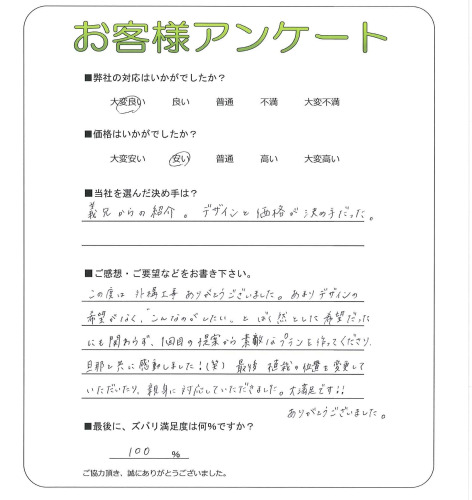 お客様アンケート
■弊社の対応はいかがでしたか？
大変良い 良い 普通 不満 大変不満
■価格はいかがでしたか？
大変安い 安い 普通 高い 大変高い
■当社を選んだ決め手は？
義兄からの紹介。デザインと価格が決め手だった。
■ご感想・ご要望などをお書き下さい。
この度は外構工事ありがとうございました。あまりデザインの
希望がなく、"こんなのがしたい"とばく然とした希望だった
にも関わらず、1回目の提案から素敵なプランを作ってくださり、
旦那と共に感動しました!(笑) 最後 植栽の位置を変更して
いただいたり、親身に対応していただきました。大満足です!!
ありがとうございました。
■最後に、ズバリ満足度は何%ですか？
100 %
ご協力頂き、誠にありがとうございました。